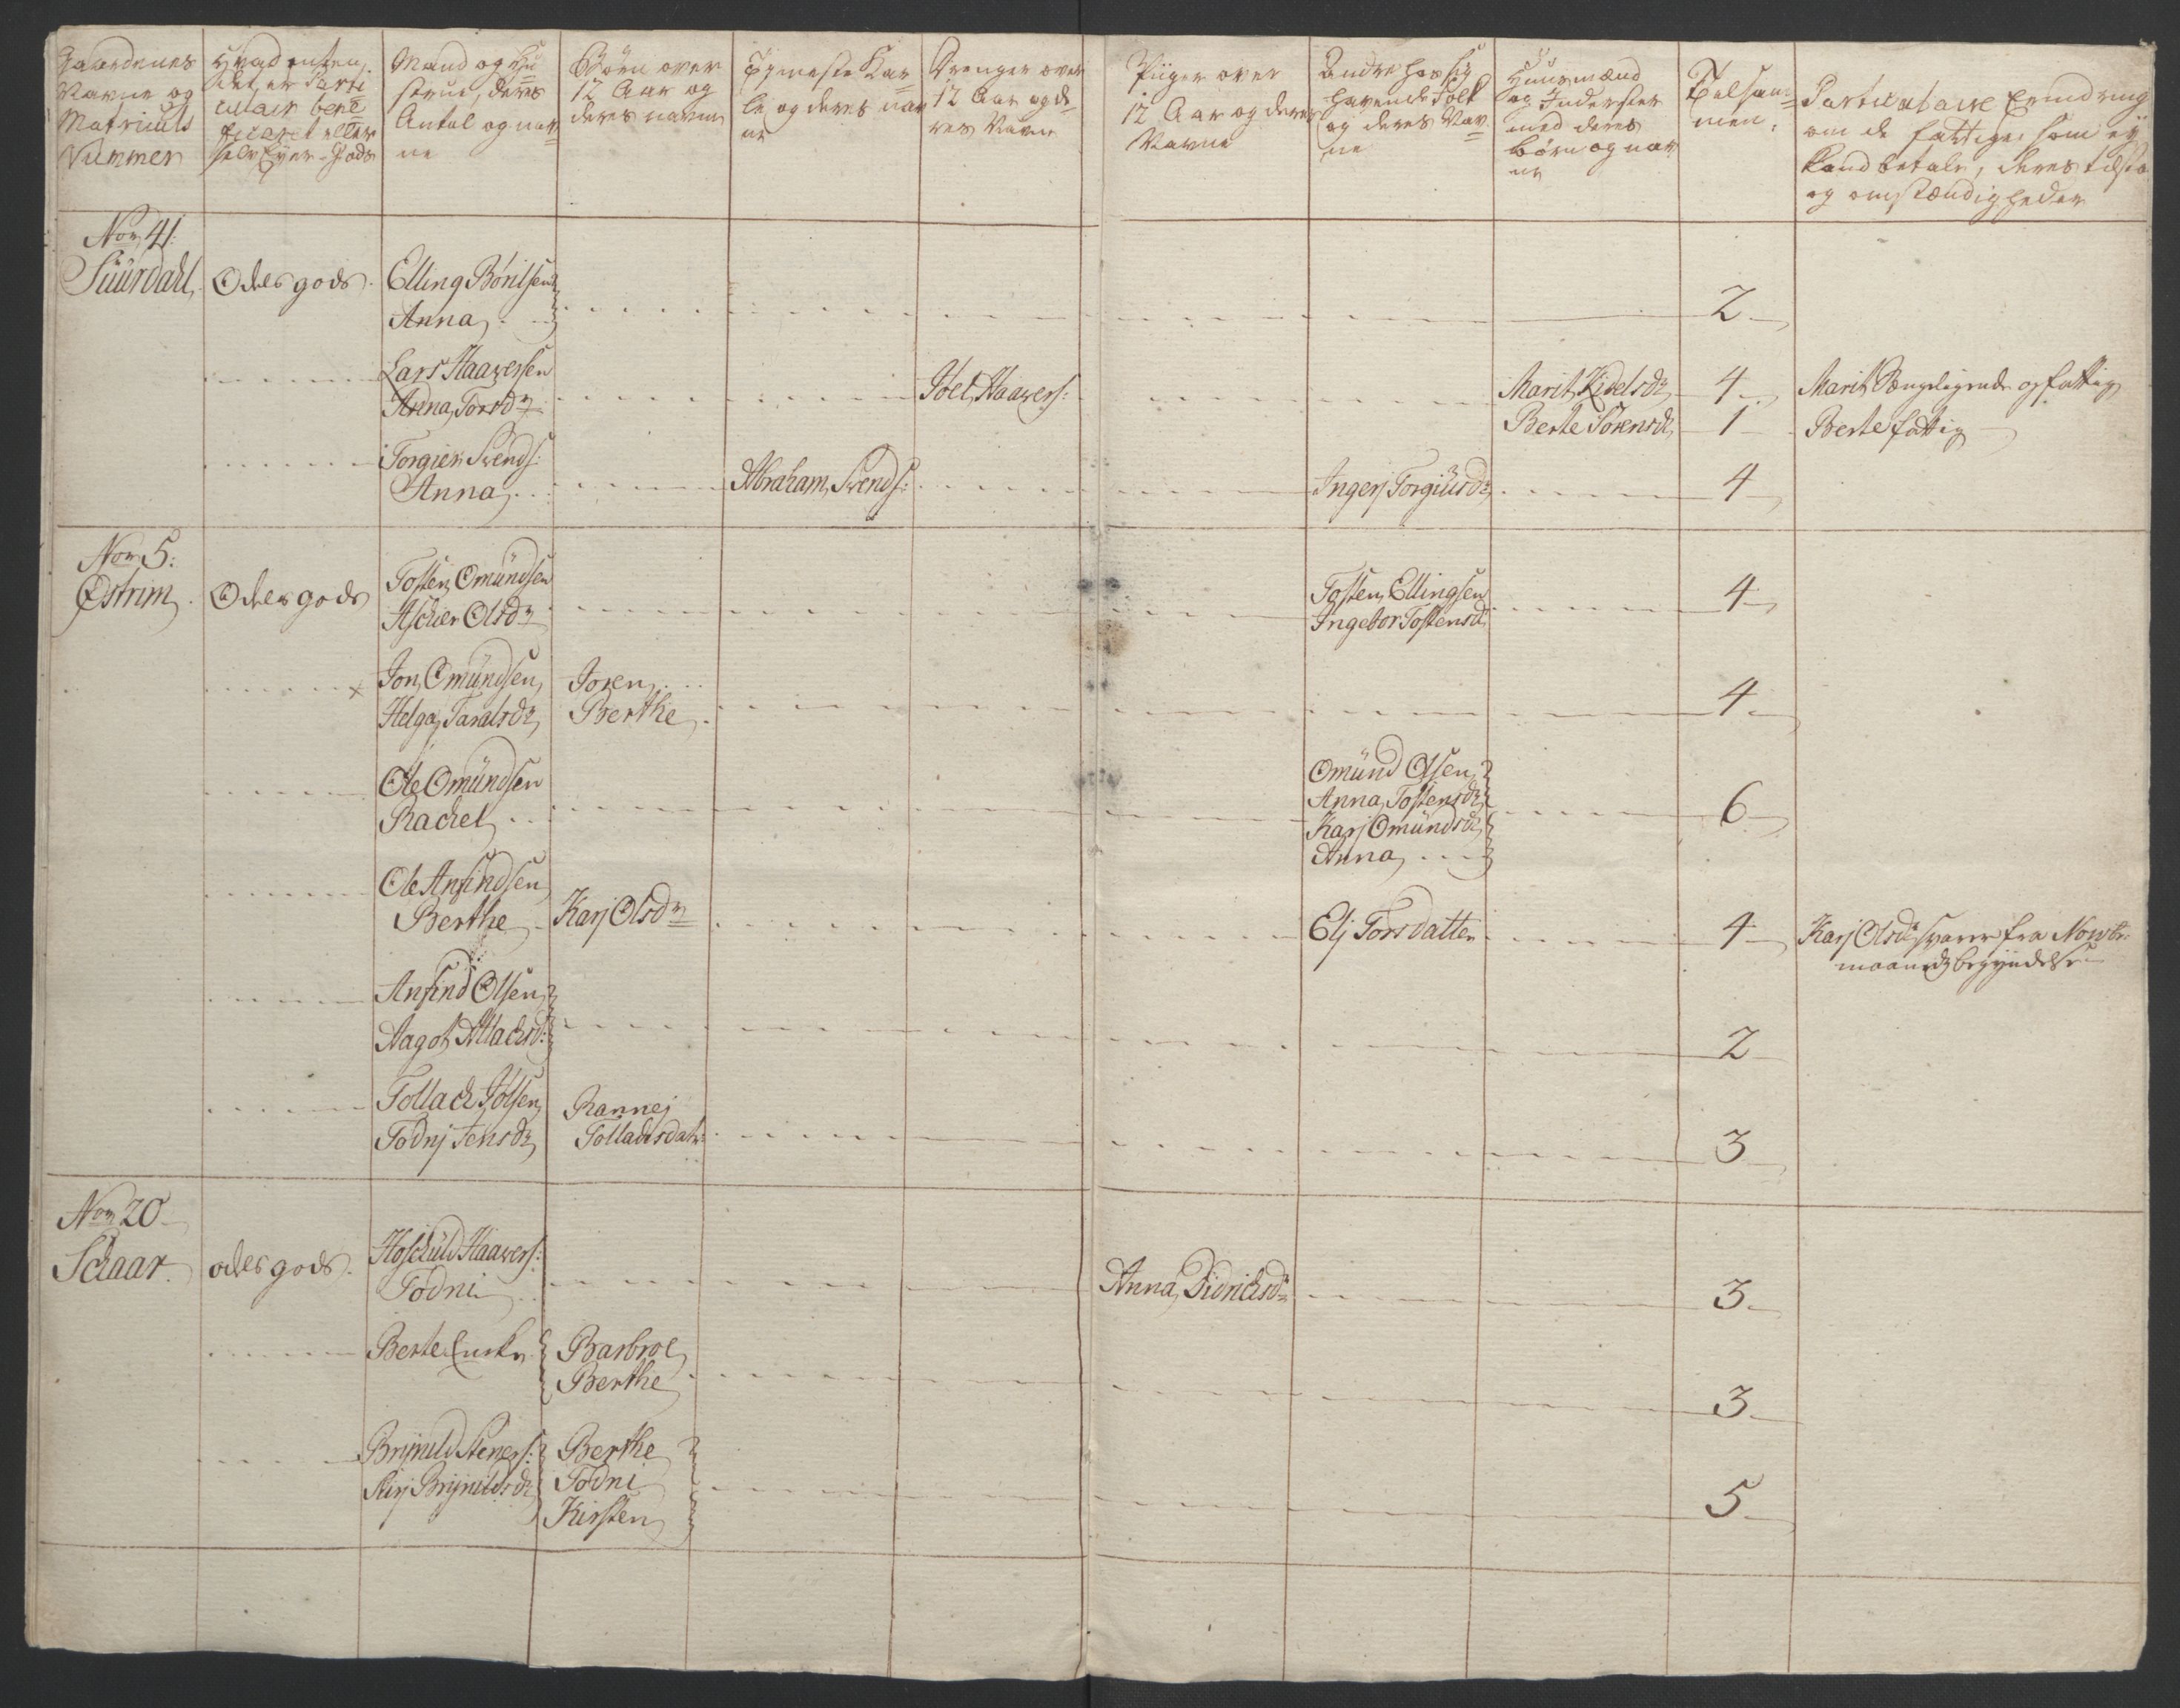 Gaardenes
Navne og
Matriculs
Nummer
Hvad enten
det er Parti
culair bene
ficeret eller
selv Eyer-Gods
Mand og Hu
strue, deres
Antal og nav
ne
Børn over
12 Aar og
deres navne
Tieneste Kar
le og deres nav
ne
Drenge over
12 Aar og de
res Navne
Piiger over
12 Aar og deres
Navne
Andre hos sig
havende Folk
og deres Nav
ne
Huusmænd
og Inderster
med deres
børn og nav
ne
Tilsam
men.
Particulaire Erindring
om de fattige som ey
kand betale, deres
og omstændigheder
No 41.
Suurdahl.
Odelsgods.
Elling Børilsen
Anna
2
Lars Haaversen
Anna Torsdr
Joel Haavers:
Marit Kidelsdr
4
Marit Sengeligende og fattig
Berte Sørensdr
1
Berte fattig
Torgier Svends:
Anna
Abraham Svends:
Ingerj Torgiursdr
4
No 5:
Østrim
Odelsgods
Tosten Omündsen
Aschier Olsdr
Tosten Ellingsen
Ingebor Tostensdr
4
Jon Omündsen
Helga Taralsdr
Joren
Berthe
4
Ole Omündsen
Rachel
Omünd Olsen
Anna Tostensdr
Karj Omündsdr
Anna
6
Ole Anfindsen
Berthe
Karj Olsdr
Elj Torsdatter
4
Karj Olsdr svarer fra Novbr
maaneds begyndelse
Anfind Olsen
Aagot Atlachsd:
2
Tollach Jølsen
Todnj Jensdr
Rannej
Tollachsdatr
3
No 20
Schaar
odelsgods.
Hoschuld Haavers:
Todni
Anna Didrichsdr
3
Berte Encke
Barbroe
Berthe
3
Brynild Steners:
Sirj Brynildsdr
Berthe
Todni
Kirsten
5